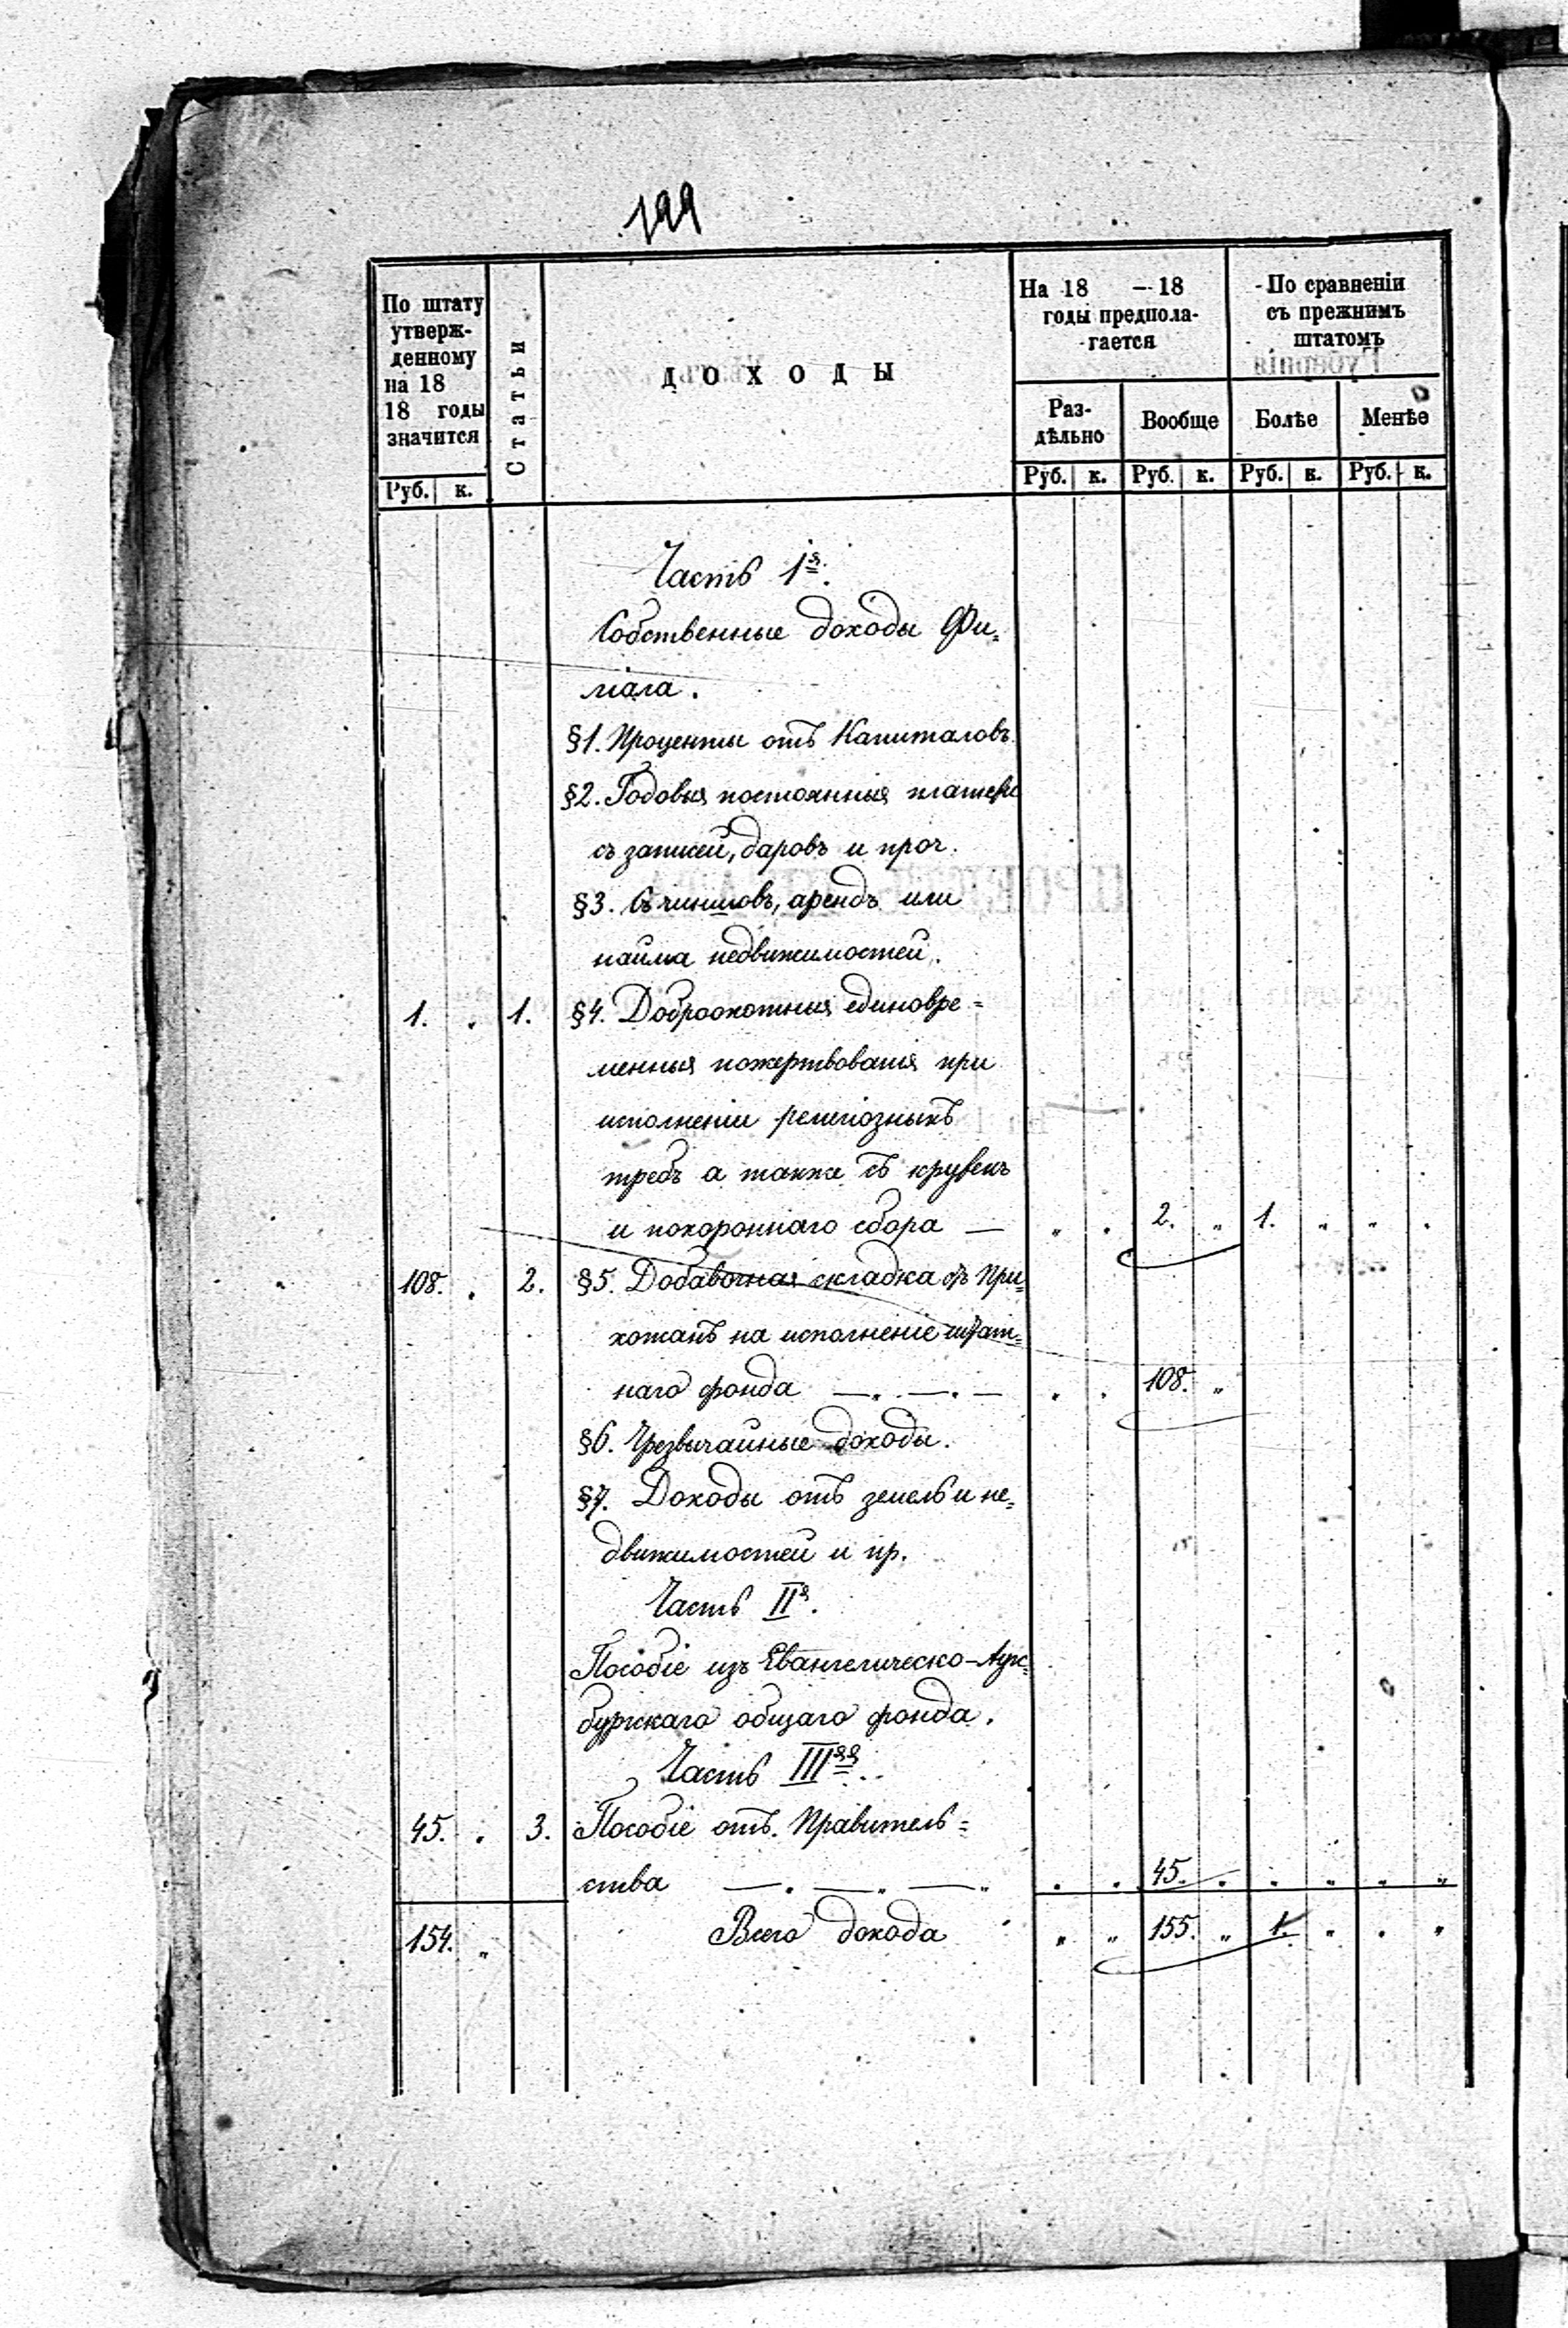 199
По штату утверж-денному на 18 18 годы значится
Статьи
ДОХОДЫ
На 18 — 18 годы предпола-гается
По сравненіи съ прежнимъ штатомъ
Раз-дѣльно
Вообще
Болѣе
Менѣе
Руб. к.
Руб. к. Руб. к. Руб. к. Руб. к.
Часть 1я.
Собственные доходы Фи=
ліала.
§1. Проценты отъ Капиталовъ.
§2. Годовыя постоянныя платежи
съ записей, даровъ и проч.
§3. Съ чиншовъ, арендъ или
найма недвижимостей.
1. „ 1. §4. Доброохотныя единовре=
менныя пожертвованія при
исполненіи религіозныхъ
требъ а также съ кружекъ
и похороннаго сбора — „ „ 2. „ 1. „ „ „
108. „ 2. §5. Добавочная складка съ При=
хожанъ на исполненіе штат=
наго фонда — „ — „ — „ „ 108. „
§6. Чрезвычайные доходы.
§7. Доходы отъ земель и не=
движимостей и пр.
Часть IIя.
Пособіе изъ Евангелическо-Аугс=
бургскаго общаго фонда.
Часть IIIяя.
45. „ 3. Пособіе отъ Правитель=
ства — „ — „ — „ „ „ 45. „ „ „ „ „
154. „ Всего дохода „ „ 155. „ 1. „ „ „